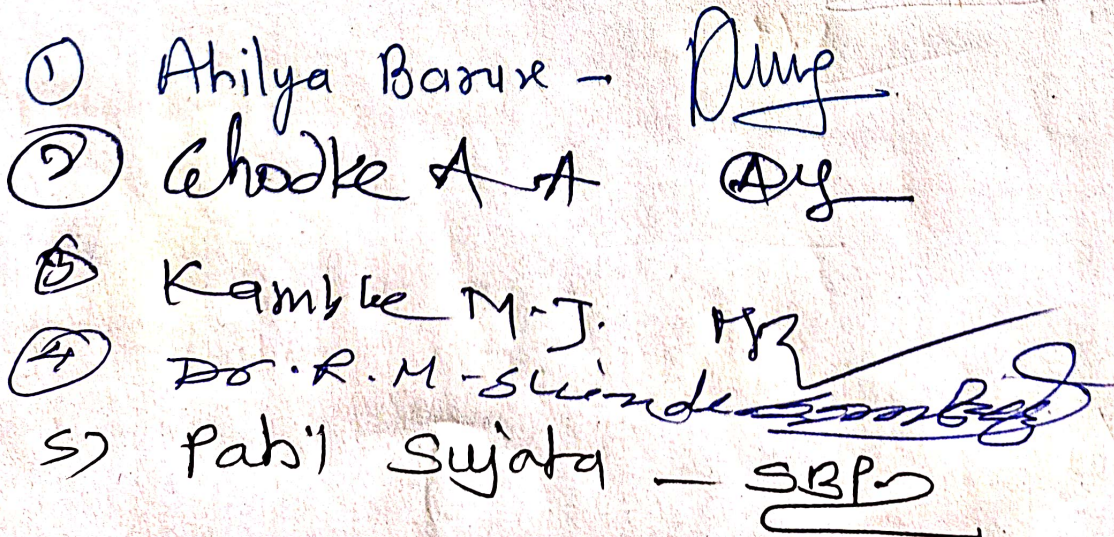 ① Ahilya Barure -
② Ghodke A A
③ Kamble M.J.
④ Dr. R. M. Shinde
5) Patil Sujata - SBP